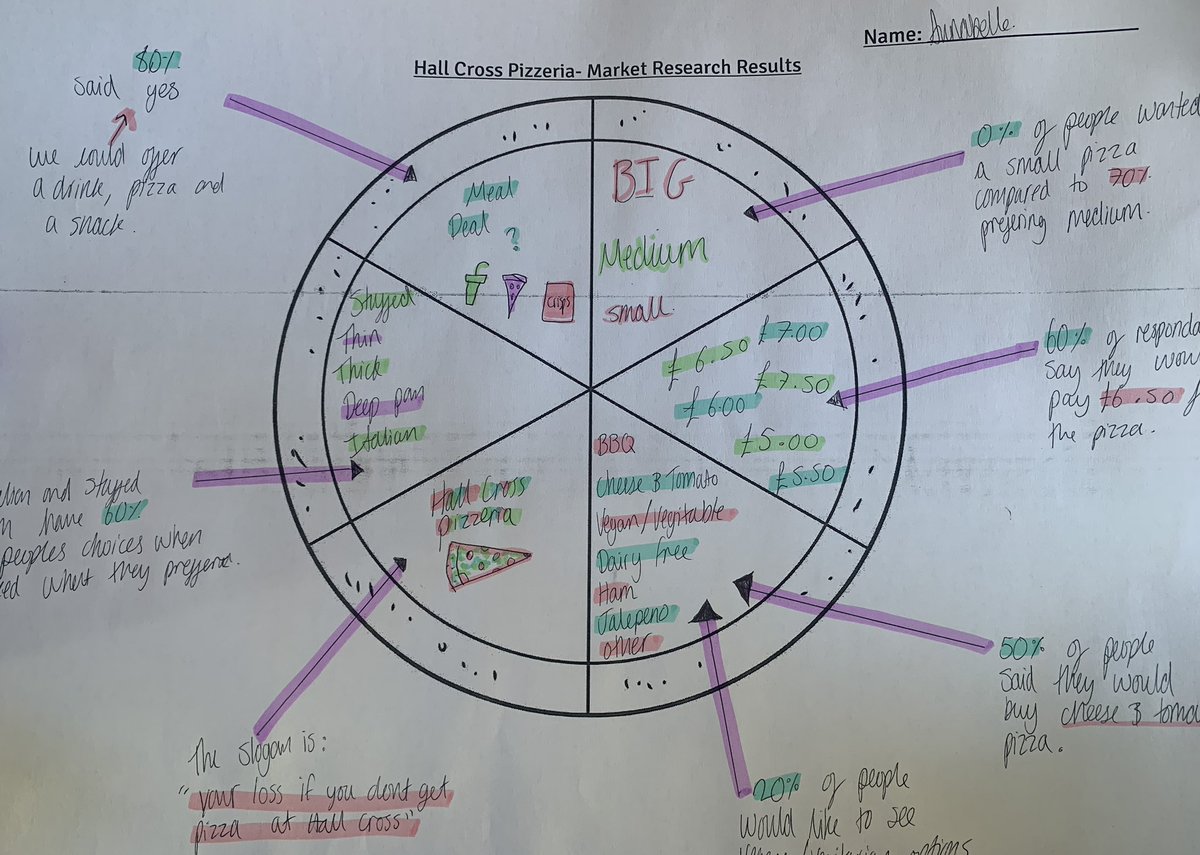 Name: Annabelle.
Hall Cross Pizzeria- Market Research Results
80%
said yes
we could offer
a drink, pizza and
a snack.
Meal
Deal
?
crisps
BIG
Medium
small.
0% of people wanted
a small pizza
compared to 70%
prefering medium.
£6.50
£7.00
£7.50
£6.00
£5.00
£5.50
60% of responda
say they wou
pay £6.50 f
the pizza.
Stuffed
Thin
Thick
Deep pan
Italian
and stuffed
have 60%
peoples choices when
what they preffered.
Hall Cross
pizzeria
The slogan is:
"your loss if you dont get
pizza at Hall Cross"
BBQ
Cheese & Tomato
Vegan/Vegitable
Dairy free
Ham
Jalepeno
other
50% of people
said they would
buy cheese & toma
pizza.
20% of people
would like to see
options